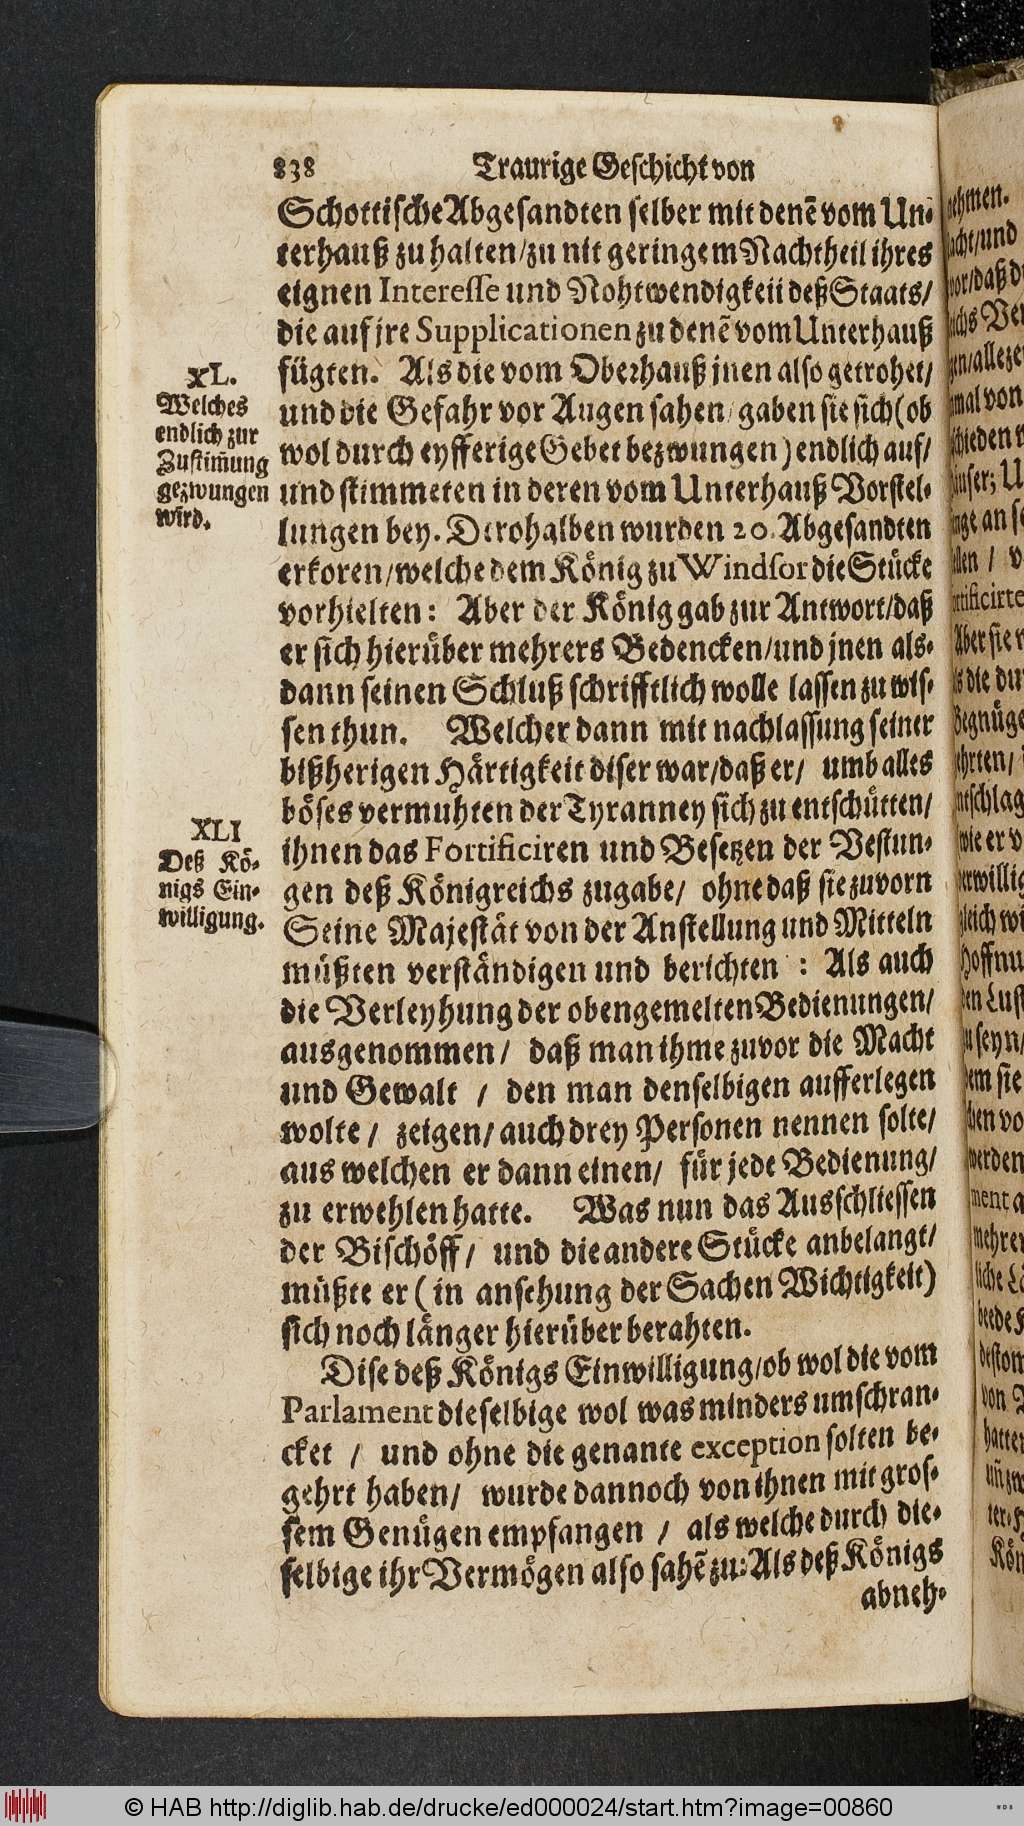 838 Traurige Geschicht von
Schottische Abgesandten selber mit denē vom Un-
terhauß zu halten/zu nit geringem Nachtheil ihres
eignen Interesse und Nohtwendigkeii deß Staats/
die auf jre Supplicationen zu denē vom Unterhauß
fügten. Als die vom Oberhauß jnen also getrohet/
und die Gefahr vor Augen sahen/ gaben sie sich (ob
wol durch eyfferige Gebet bezwungen) endlich auf/
und stimmeten in deren vom Unterhauß Vorstel-
lungen bey. Derohalben wurden 20. Abgesandten
erkoren/welche dem König zu Windsor die Stücke
vorhielten: Aber der König gab zur Antwort/daß
er sich hierüber mehrers Bedencken/und jnen als-
dann seinen Schluß schrifftlich wolle lassen zu wis-
sen thun. Welcher dann mit nachlassung seiner
bißherigen Härtigkeit diser war/daß er/ umb alles
böses vermuhten der Tyranney sich zu entschütten/
ihnen das Fortificiren und Besetzen der Vestun-
gen deß Königreichs zugabe/ ohne daß sie zuvorn
Seine Majestät von der Anstellung und Mitteln
müßten verständigen und berichten : Als auch
die Verleyhung der obengemelten Bedienungen/
ausgenommen/ daß man ihme zuvor die Macht
und Gewalt / den man denselbigen aufferlegen
wolte/ zeigen/ auch drey Personen nennen solte/
aus welchen er dann einen/ für jede Bedienung/
zu erwehlen hatte. Was nun das Ausschliessen
der Bischöff/ und die andere Stücke anbelangt/
müßte er (in ansehung der Sachen Wichtigkeit)
sich noch länger hierüber berahten.
Dise deß Königs Einwilligung/ob wol die vom
Parlament dieselbige wol was minders umschran-
cket / und ohne die genante exception solten be-
gehrt haben/ wurde dannoch von ihnen mit gros-
sem Genügen empfangen / als welche durch die-
selbige ihr Vermögen also sahē zu: Als deß Königs
abneh-
XL.
Welches
endlich zur
Zustim̄ung
gezwungen
wird.
XLI
Deß Kö-
nigs Ein-
willigung.
© HAB http://diglib.hab.de/drucke/ed000024/start.htm?image=00860